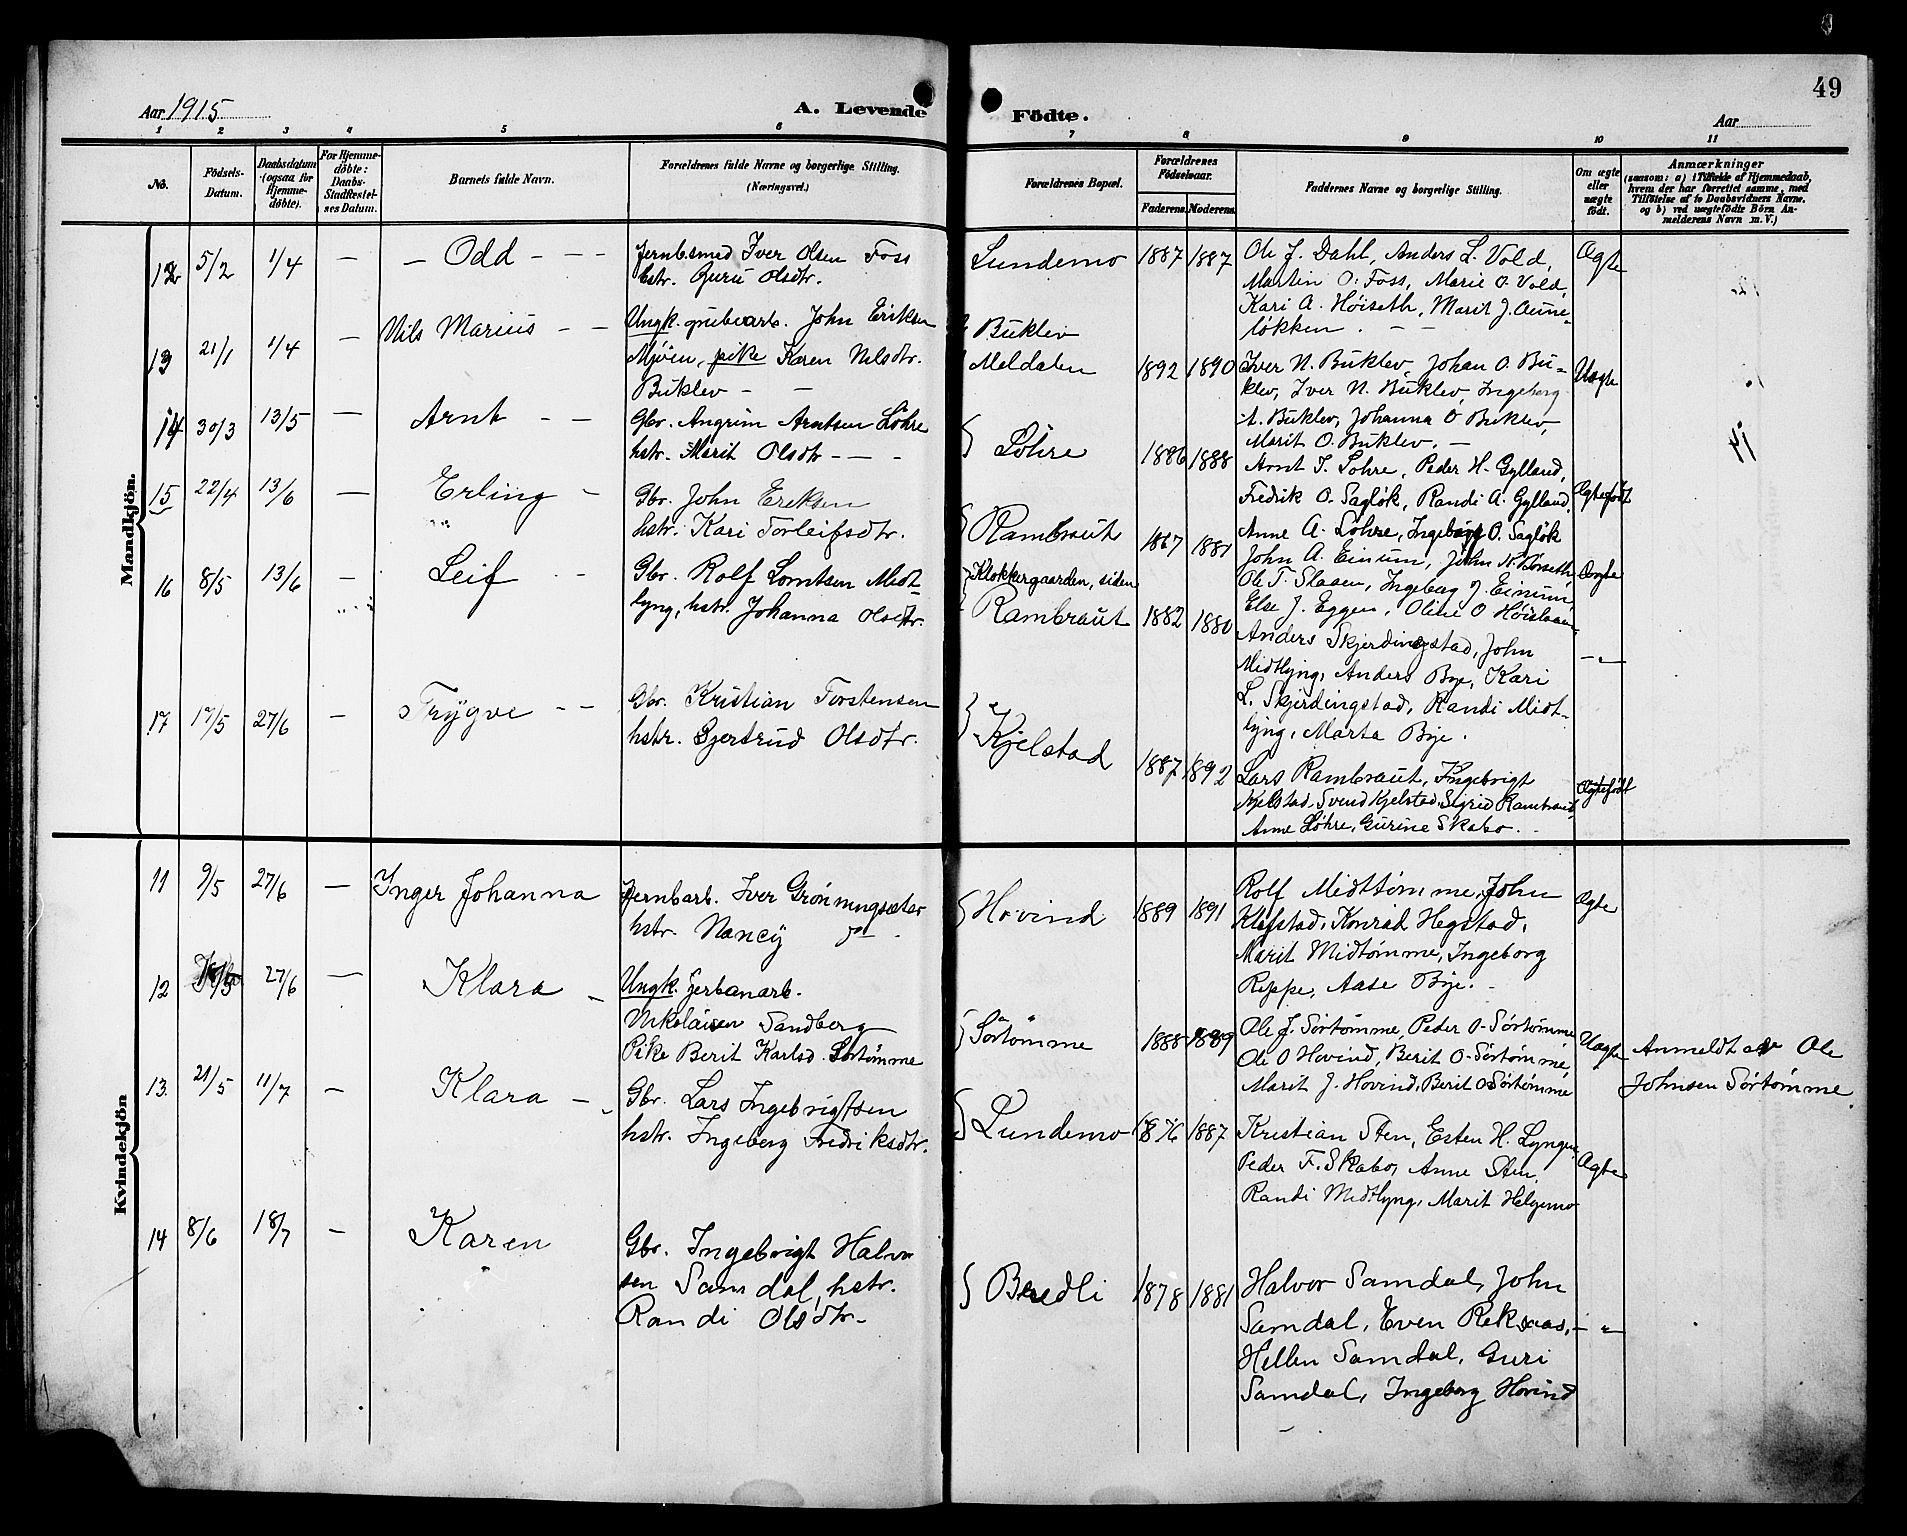 49
Aar 1915
A. Levende Födte.
Aar
1 2 3 4 5 6 7 8 9 10 11
No.
Födsels-Datum.
Daabsdatum (ogsaa for Hjemme-döbte).
For Hjemme-döbte: Daabs-Stadfæstel-ses Datum.
Barnets fulde Navn.
Forældrenes fulde Navne og borgerlige Stilling. (Næringsvei.)
Forældrenes Bopæl.
Forældrenes Födselsaar.
Faderens. Moderens.
Faddernes Navne og borgerlige Stilling.
Om ægte eller uægte födt.
Anmærkninger
(saasom: a) i Tilfælde af Hjemmedaab, hvem der har forrettet samme, med Tilföielse af to Daabsvidners Navne. og b) ved uægtefödte Börn An-melderens Navn m. V.)
Mandkjön.
12 5/2 1/4 — — Odd — — —
Jernb.smed Iver Olsen Foss
hstr. Guru Olsdtr.
Lundemo 1887 1887
Ole J. Dahl, Anders L. Vold,
Martin O. Foss, Marie O. Vold,
Kari A. Höiseth, Marit J. Aune-
løkken. — —
Ægte
13 21/1 1/4 — Nils Marius — —
Ungk. grubearb. John Eriksen
Mjöen, pike Karen Nilsdtr.
Buklev — —
Buklev
Meldalen 1892 1890
Iver N. Buklev, Johan O. Bu-
klev, Iver N. Buklev, Ingeborg
A. Buklev, Johanna O Buklev,
Marit O. Buklev. —
Uægte
14 30/3 13/5 — Arnt — —
Gbr. Angrim Arntsen Löhre
hstr. Marit Olsdtr — — -
Löhre 1886 1888
Arnt I. Lohre, Peder H. Gylland,
Fredrik O. Sagløk, Randi A. Gylland,
Anne A. Löhre, Ingeborg O. Sagløk
Ægtefödt
15 22/4 13/6 — Erling —
Gbr. John Eriksen
hstr. Kari Torleifsdtr.
Rambraut 1867 1881
John A. Einum, John N. Börseth,
Ole T. Slaaen, Ingeborg J. Einum,
Else J. Eggen, Oline O Höislaaen
Ægte
16 8/5 13/6 — Leif — -
Gbr. Rolf Lorntsen Midt-
lyng, hstr. Johanna Olsdtr.
Klokkergaarden, siden
Rambraut 1882 1880
Anders Skjerdingstad, John
Midtlyng, Anders Bye, Kari
L. Skjerdingstad, Randi Midt-
lyng, Marta Bye.
— " —
17 17/5 27/6 — Trygve — -
Gbr. Kristian Torstensen
hstr. Gjertrud Olsdtr.
Kjelstad 1887 1892
Lars Rambraut, Ingebrigt
Kjelstad, Svend Kjelstad, Sigrid Rambraut,
Anne Löhre, Gurine Skabo. -
Ægtefödt
Kvindekjön
11 9/5 27/6 — Inger Johanna
Jernbarb. Iver Grönningsæter
hstr. Nancy do -
Hovind 1889 1891
Rolf Midttömme, John
Klefstad, Konrad Hegstad,
Marit Midtömme, Ingeborg
Reppe, Aase Bye. -
Ægte
12 27/6 — Klara —
Ungk. jerbanarb.
Nikolaisen Sandberg
Pike Berit Karlsd. Sörtömme
Sörtömme 1888 1889
Ole J. Sörtömme, Peder O. Sörtömme
Ole O Hovind, Berit O. Sörtömme,
Marit J. Hovind, Berit O. Sörtömme
Uægte
Anmeldt av Ole
Johnsen Sörtömme.
13. 21/5 11/7 — Klara — -
Gbr. Lars Ingebrigtsen
hstr. Ingeborg Fredriksdtr.
Lundemo 1876 1887
Kristian Sten, Esten H. Lyngen,
Peder F. Skabo, Anne Sten.
Randi Midtlyng, Marit Helgemo
Ægte
14 8/6 18/7 — Karen
Gbr. Ingebrigt Halvor
sen Samdal, hstr.
Randi Olsdtr.
Bredli 1878 1881
Halvor Samdal, John
Samdal, Even Reksaas,
Hellen Samdal, Guri
Samdal, Ingeborg Hovind
— " —